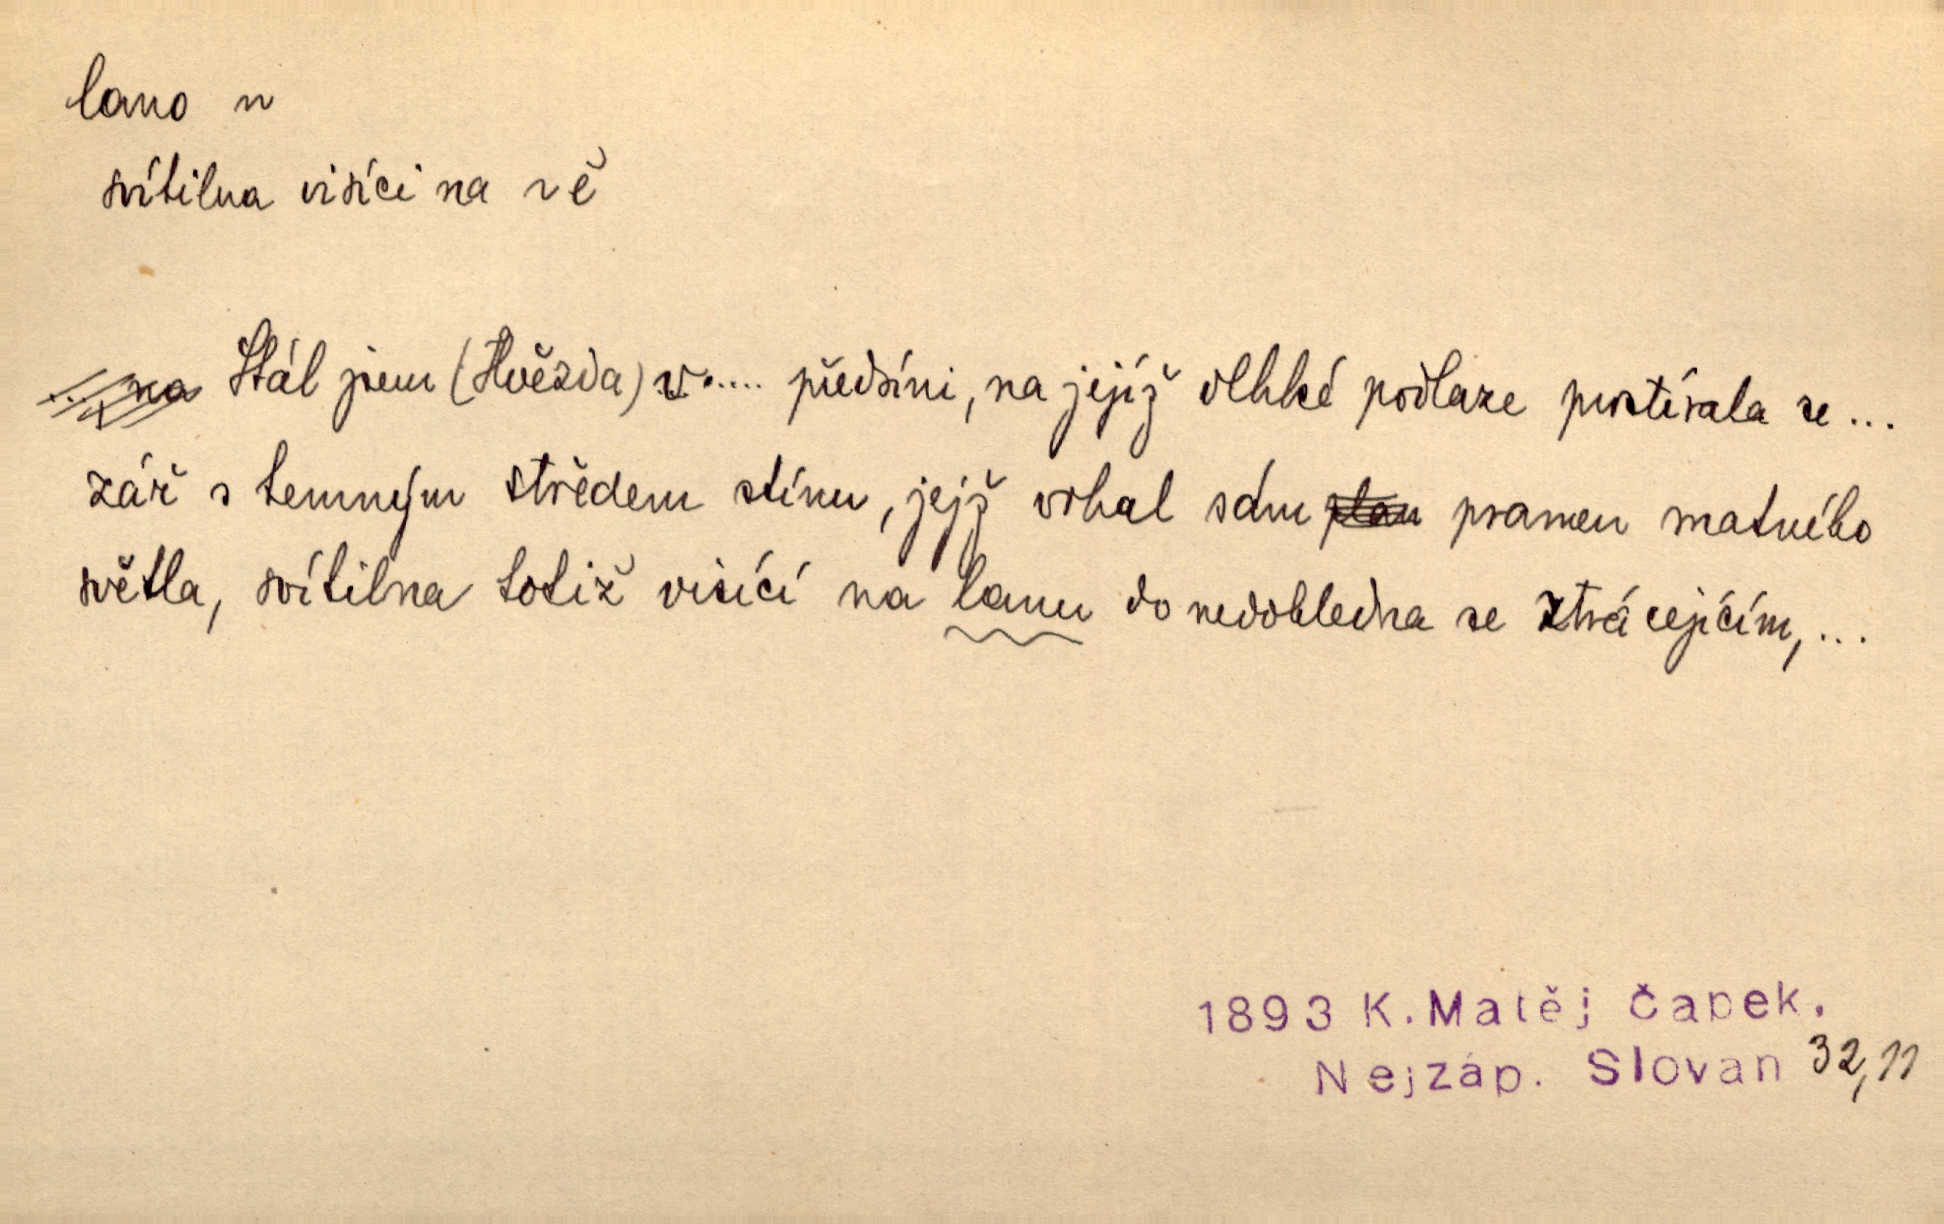 lano n
svítilna visící na ~ě
Stál jsem (Hvězda) v..... předsíni, na jejíž vlhké podlaze prostírala se ...
zář s temným středem stínu, jejž vrhal sám pramen matného
světla, svítilna totiž visící na lanu do nedohledna se ztrácejícím, ...
1893 K. Matěj Čapek.
Nejzáp. Slovan 32,11